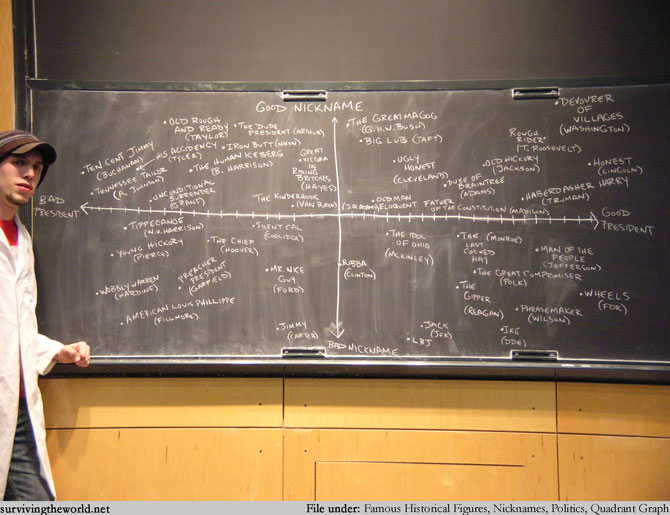 GOOD NICKNAME
• DEVOURER OF
VILLAGES
(WASHINGTON)
• OLD ROUGH
AND READY
(TAYLOR)
• THE DUDE
PRESIDENT (ARTHUR)
• THE GREAT MAGOG
(G.H.W. BUSH)
• BIG LUB (TAFT)
ROUGH
RIDER•
(T. ROOSEVELT)
• TEN CENT JIMMY
(BUCHANAN)
• HIS ACCIDENCY
(TYLER)
• IRON BUTT (NIXON)
• THE HUMAN ICEBERG
(B. HARRISON)
GREAT
• VICTORIA
IN
RIDING
BRITCHES
(HAYES)
• UGLY
HONEST
(CLEVELAND)
• OLD HICKORY
(JACKSON)
• HONEST
(LINCOLN)
• TENNESSEE TAILOR
(A. JOHNSON)
• UNCONDITIONAL
SURRENDER
(GRANT)
• DUKE OF
BRAINTREE
(ADAMS)
• HABERDASHER HARRY
(TRUMAN)
THE KINDERHOOK
• (VAN BUREN)
• OLD MAN
ELOQUENT
(J.Q. ADAMS)
FATHER
OF THE CONSTITUTION (MADISON)
BAD
PRESIDENT
GOOD
PRESIDENT
• TIPPECANOE
(W.H. HARRISON)
• YOUNG HICKORY
(PIERCE)
• THE CHIEF
(HOOVER)
• SILENT CAL
(COOLIDGE)
• THE IDOL
OF OHIO
(MCKINLEY)
• THE (MONROE)
LAST
COCKED
HAT
• MAN OF THE
PEOPLE
(JEFFERSON)
• WOBBLY WARREN
(HARDING)
• PREACHER
PRESIDENT
(GARFIELD)
• MR. NICE
GUY
(FORD)
• BUBBA
(CLINTON)
• THE GREAT COMPROMISER
(POLK)
• THE
GIPPER
(REAGAN)
• WHEELS
(FDR)
• AMERICAN LOUIS PHILLIPPE
(FILLMORE)
• PHRASEMAKER
(WILSON)
• JIMMY
(CARTER)
• JACK
(JFK)
• LBJ
• IKE
(DDE)
BAD NICKNAME
survivingtheworld.net
File under: Famous Historical Figures, Nicknames, Politics, Quadrant Graph